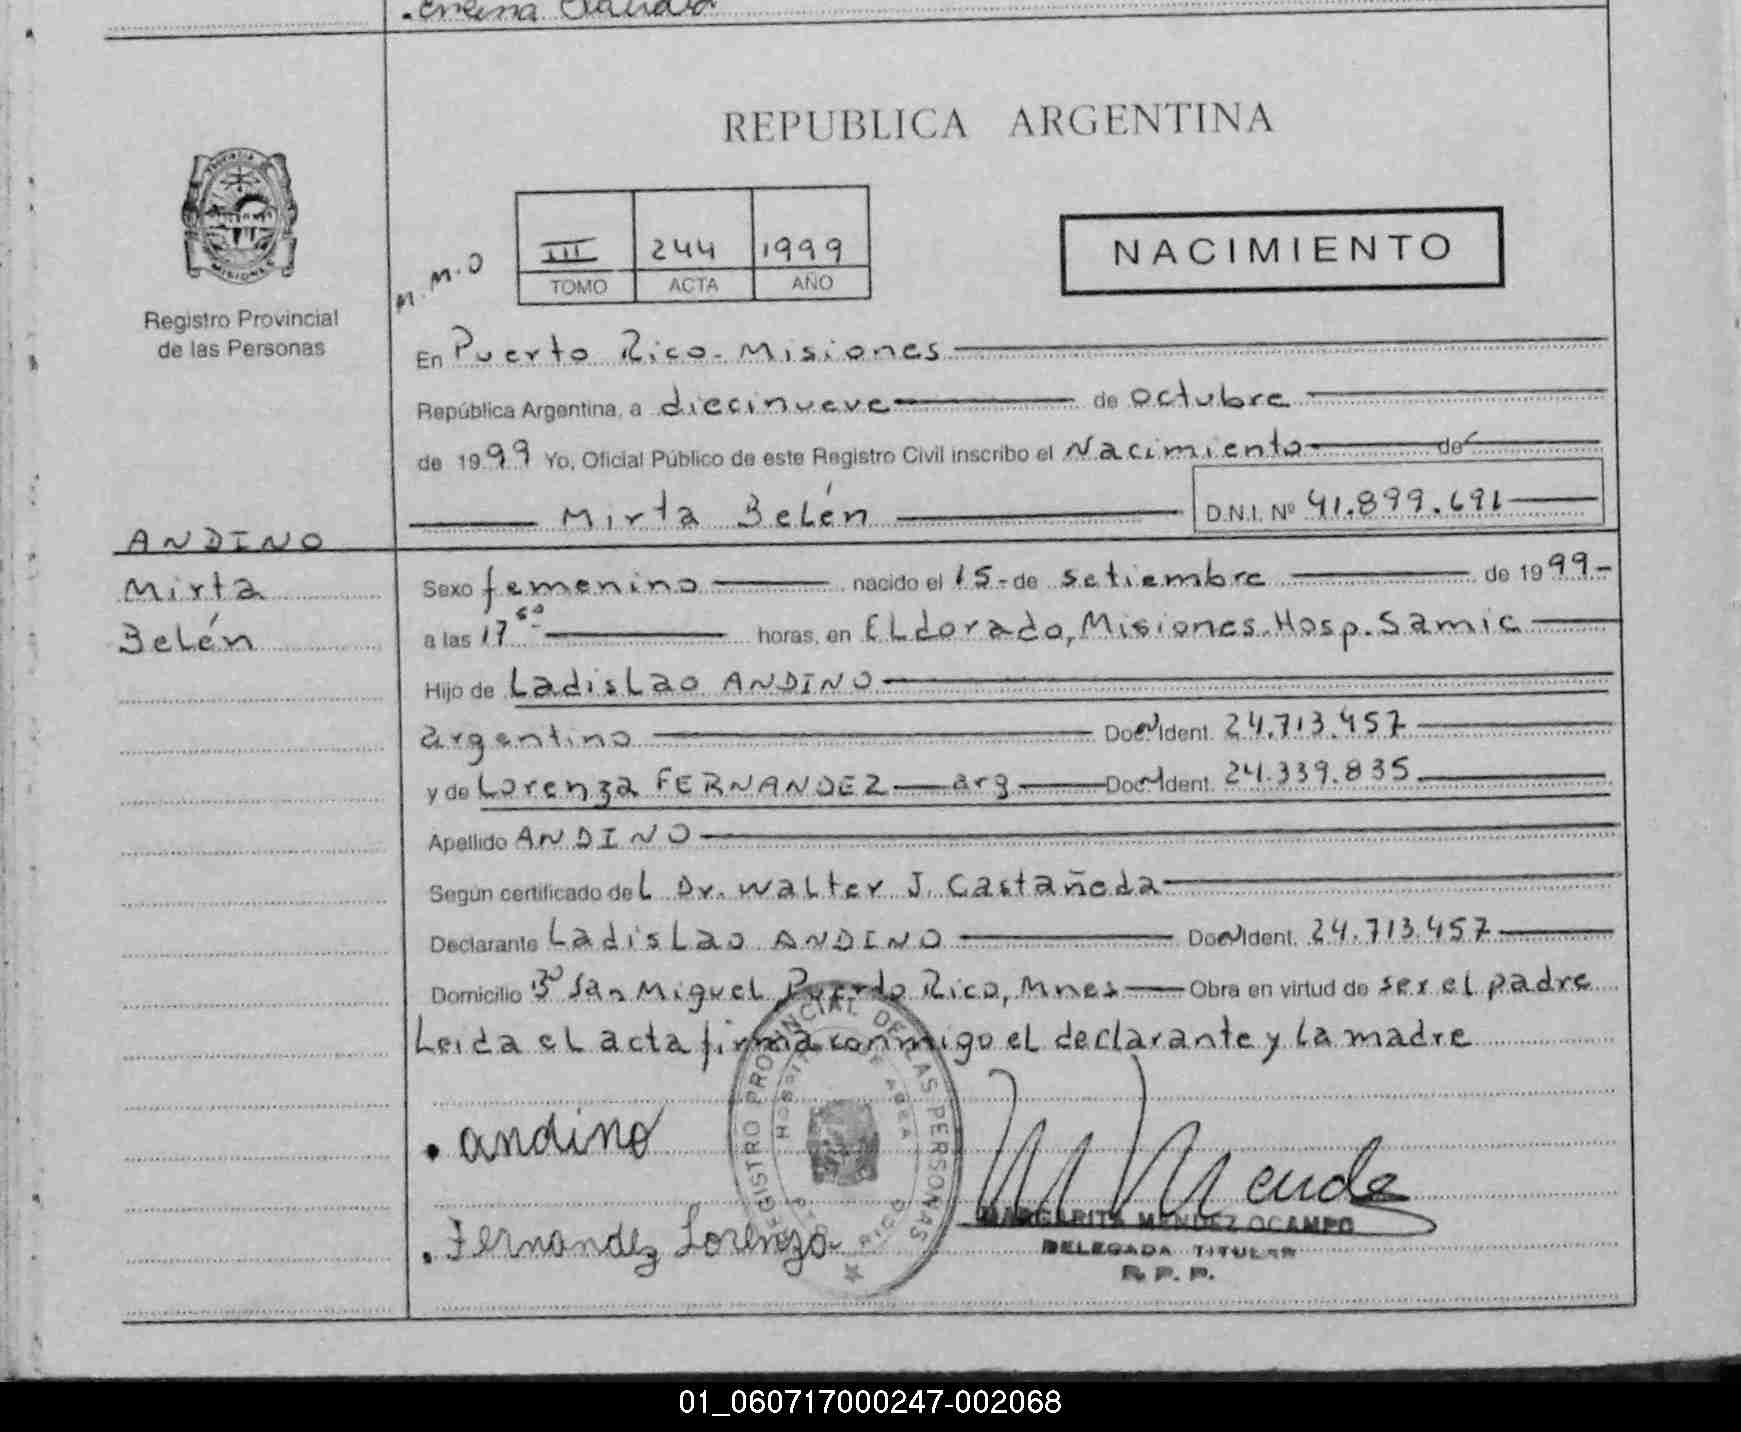 Claudia
REPUBLICA ARGENTINA
PROVINCIA
MISIONES
Registro Provincial
de las Personas
M.M.O
III 244 1999
TOMO ACTA AÑO
NACIMIENTO
En Puerto Rico - Misiones
República Argentina, a diecinueve de octubre
de 1999 Yo, Oficial Público de este Registro Civil inscribo el Nacimiento de
Mirta Belén D.N.I. Nº 41.899.691
ANDINO
Mirta
Belén
Sexo femenino nacido el 15 - de setiembre de 1999 -
a las 17 horas, en Eldorado, Misiones. Hosp. Samic
Hijo de Ladislao ANDINO
argentino Doc. Ident. 24.713.457
y de Lorenza FERNANDEZ arg Doc. Ident. 24.339.835
Apellido ANDINO
Según certificado del Dr. Walter J. Castañeda
Declarante Ladislao ANDINO Doc. Ident. 24.713.457
Domicilio Bº San Miguel Puerto Rico, Mnes Obra en virtud de ser el padre
Leida el acta firma conmigo el declarante y la madre
andino
REGISTRO PROVINCIAL DE LAS PERSONAS
M Mende
MARGARITA MENDEZ OCAMPO
DELEGADA TITULAR
R. P. P.
Fernandez Lorenza
01_060717000247-002068